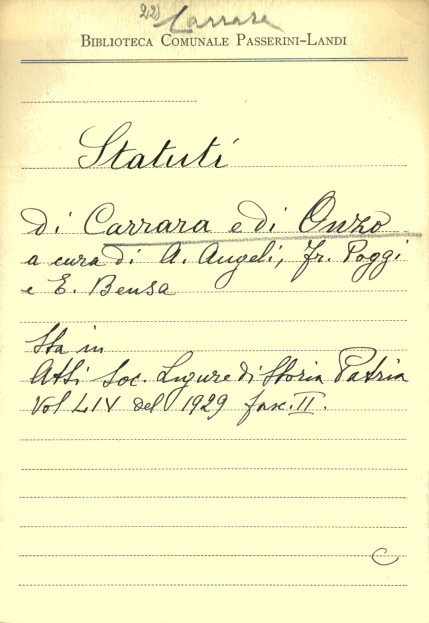 22) Carrara
BIBLIOTECA COMUNALE PASSERINI-LANDI
Statuti
di Carrara e di Onzo
a cura di A. Angeli, Fr. Poggi
e E. Bensa
Sta in
Atti Soc. Ligure di Storia Patria
Vol LIV del 1929 fasc. II.
C